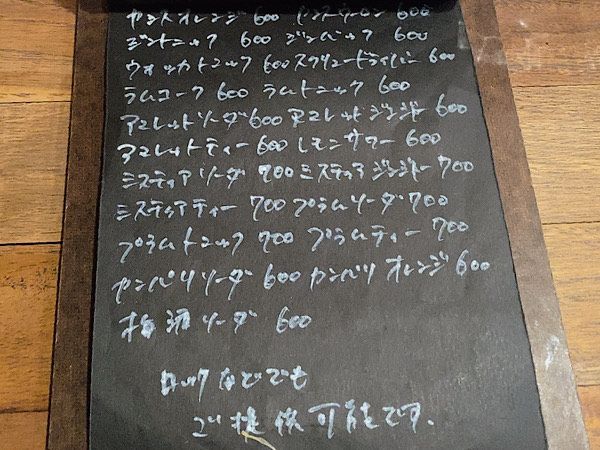 カシスオレンジ 600 カシスウーロン 600
ジントニック 600 ジンバック 600
ウォッカトニック 600 スクリュードライバー 600
ラムコーク 600 ラムトニック 600
アマレットソーダ 600 アマレットジンジャー 600
アマレットティー 600 レモンサワー 600
ミスティアソーダ 700 ミスティアジンジャー 700
ミスティアティー 700 プラムソーダ 700
プラムトニック 700 プラムティー 700
カンパリソーダ 600 カンパリオレンジ 600
梅酒ソーダ 600
ロックなどでも
ご提供可能です.